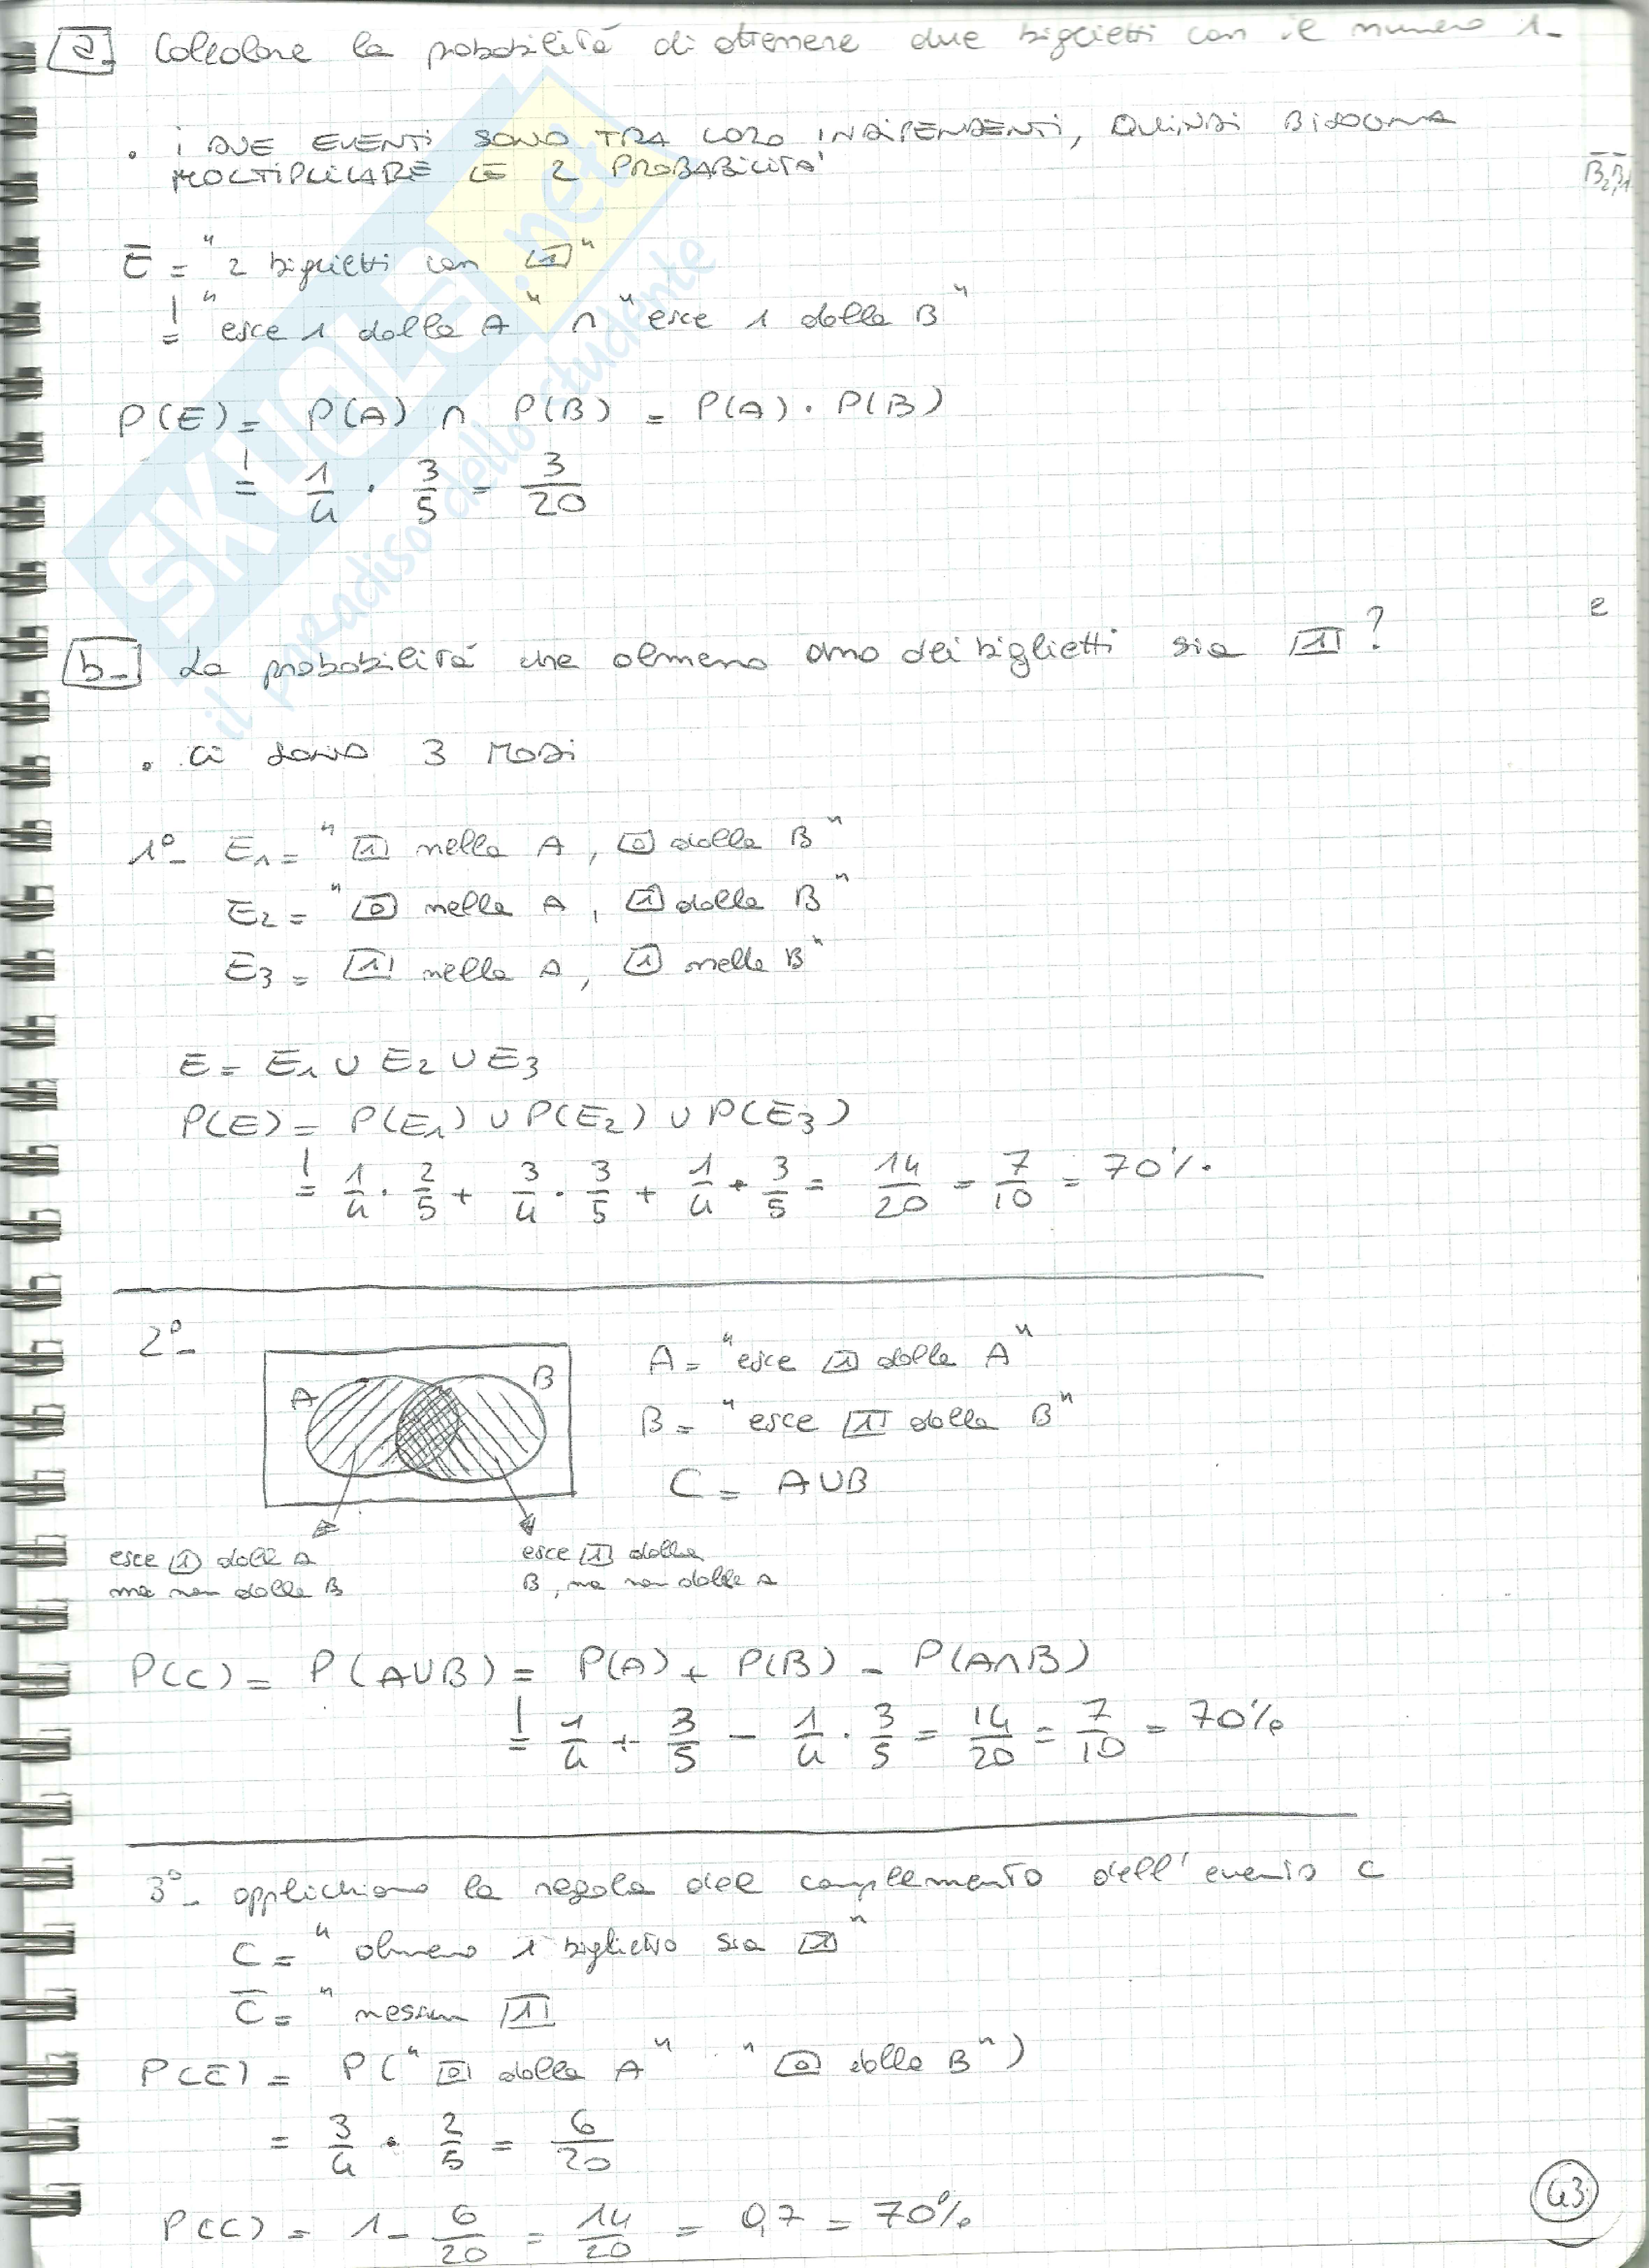 a- Calcolare la probabilità di ottenere due biglietti con il numero 1-
• i DUE EVENTI SONO TRA LORO INDIPENDENTI, QUINDI BISOGNA
MOLTIPLICARE LE 2 PROBABILITA'
B̅2B̅1
E = "2 biglietti con 1"
= "esce 1 dalla A" ∩ "esce 1 dalla B"
P(E) = P(A) ∩ P(B) = P(A) · P(B)
= 1/4 · 3/5 = 3/20
e
b- La probabilità che almeno uno dei biglietti sia 1?
• Ci sono 3 MODI
1°- E1 = "1 nella A, 0 dalla B"
E2 = "0 nella A, 1 dalla B"
E3 = 1 nella A, 1 nella B"
E = E1 ∪ E2 ∪ E3
P(E) = P(E1) ∪ P(E2) ∪ P(E3)
= 1/4 · 2/5 + 3/4 · 3/5 + 1/4 · 3/5 = 14/20 = 7/10 = 70%
2°-
A B
A = "esce 1 dalla A"
B = "esce 1 dalla B"
C = A∪B
esce 1 dall A
ma non dalla B
esce 1 dalla
B, ma non dalla A
P(C) = P(A∪B) = P(A) + P(B) - P(A∩B)
= 1/4 + 3/5 - 1/4 · 3/5 = 14/20 = 7/10 = 70%
3°- applichiamo la regola del complemento dell'evento C
C = "almeno 1 biglietto sia 1"
C̅ = "nessun 1
P(C̅) = P("0 dalla A" "0 dalla B")
= 3/4 · 2/5 = 6/20
P(C) = 1 - 6/20 = 14/20 = 0,7 = 70%
43
SKUOLA.net
il paradiso dello studente